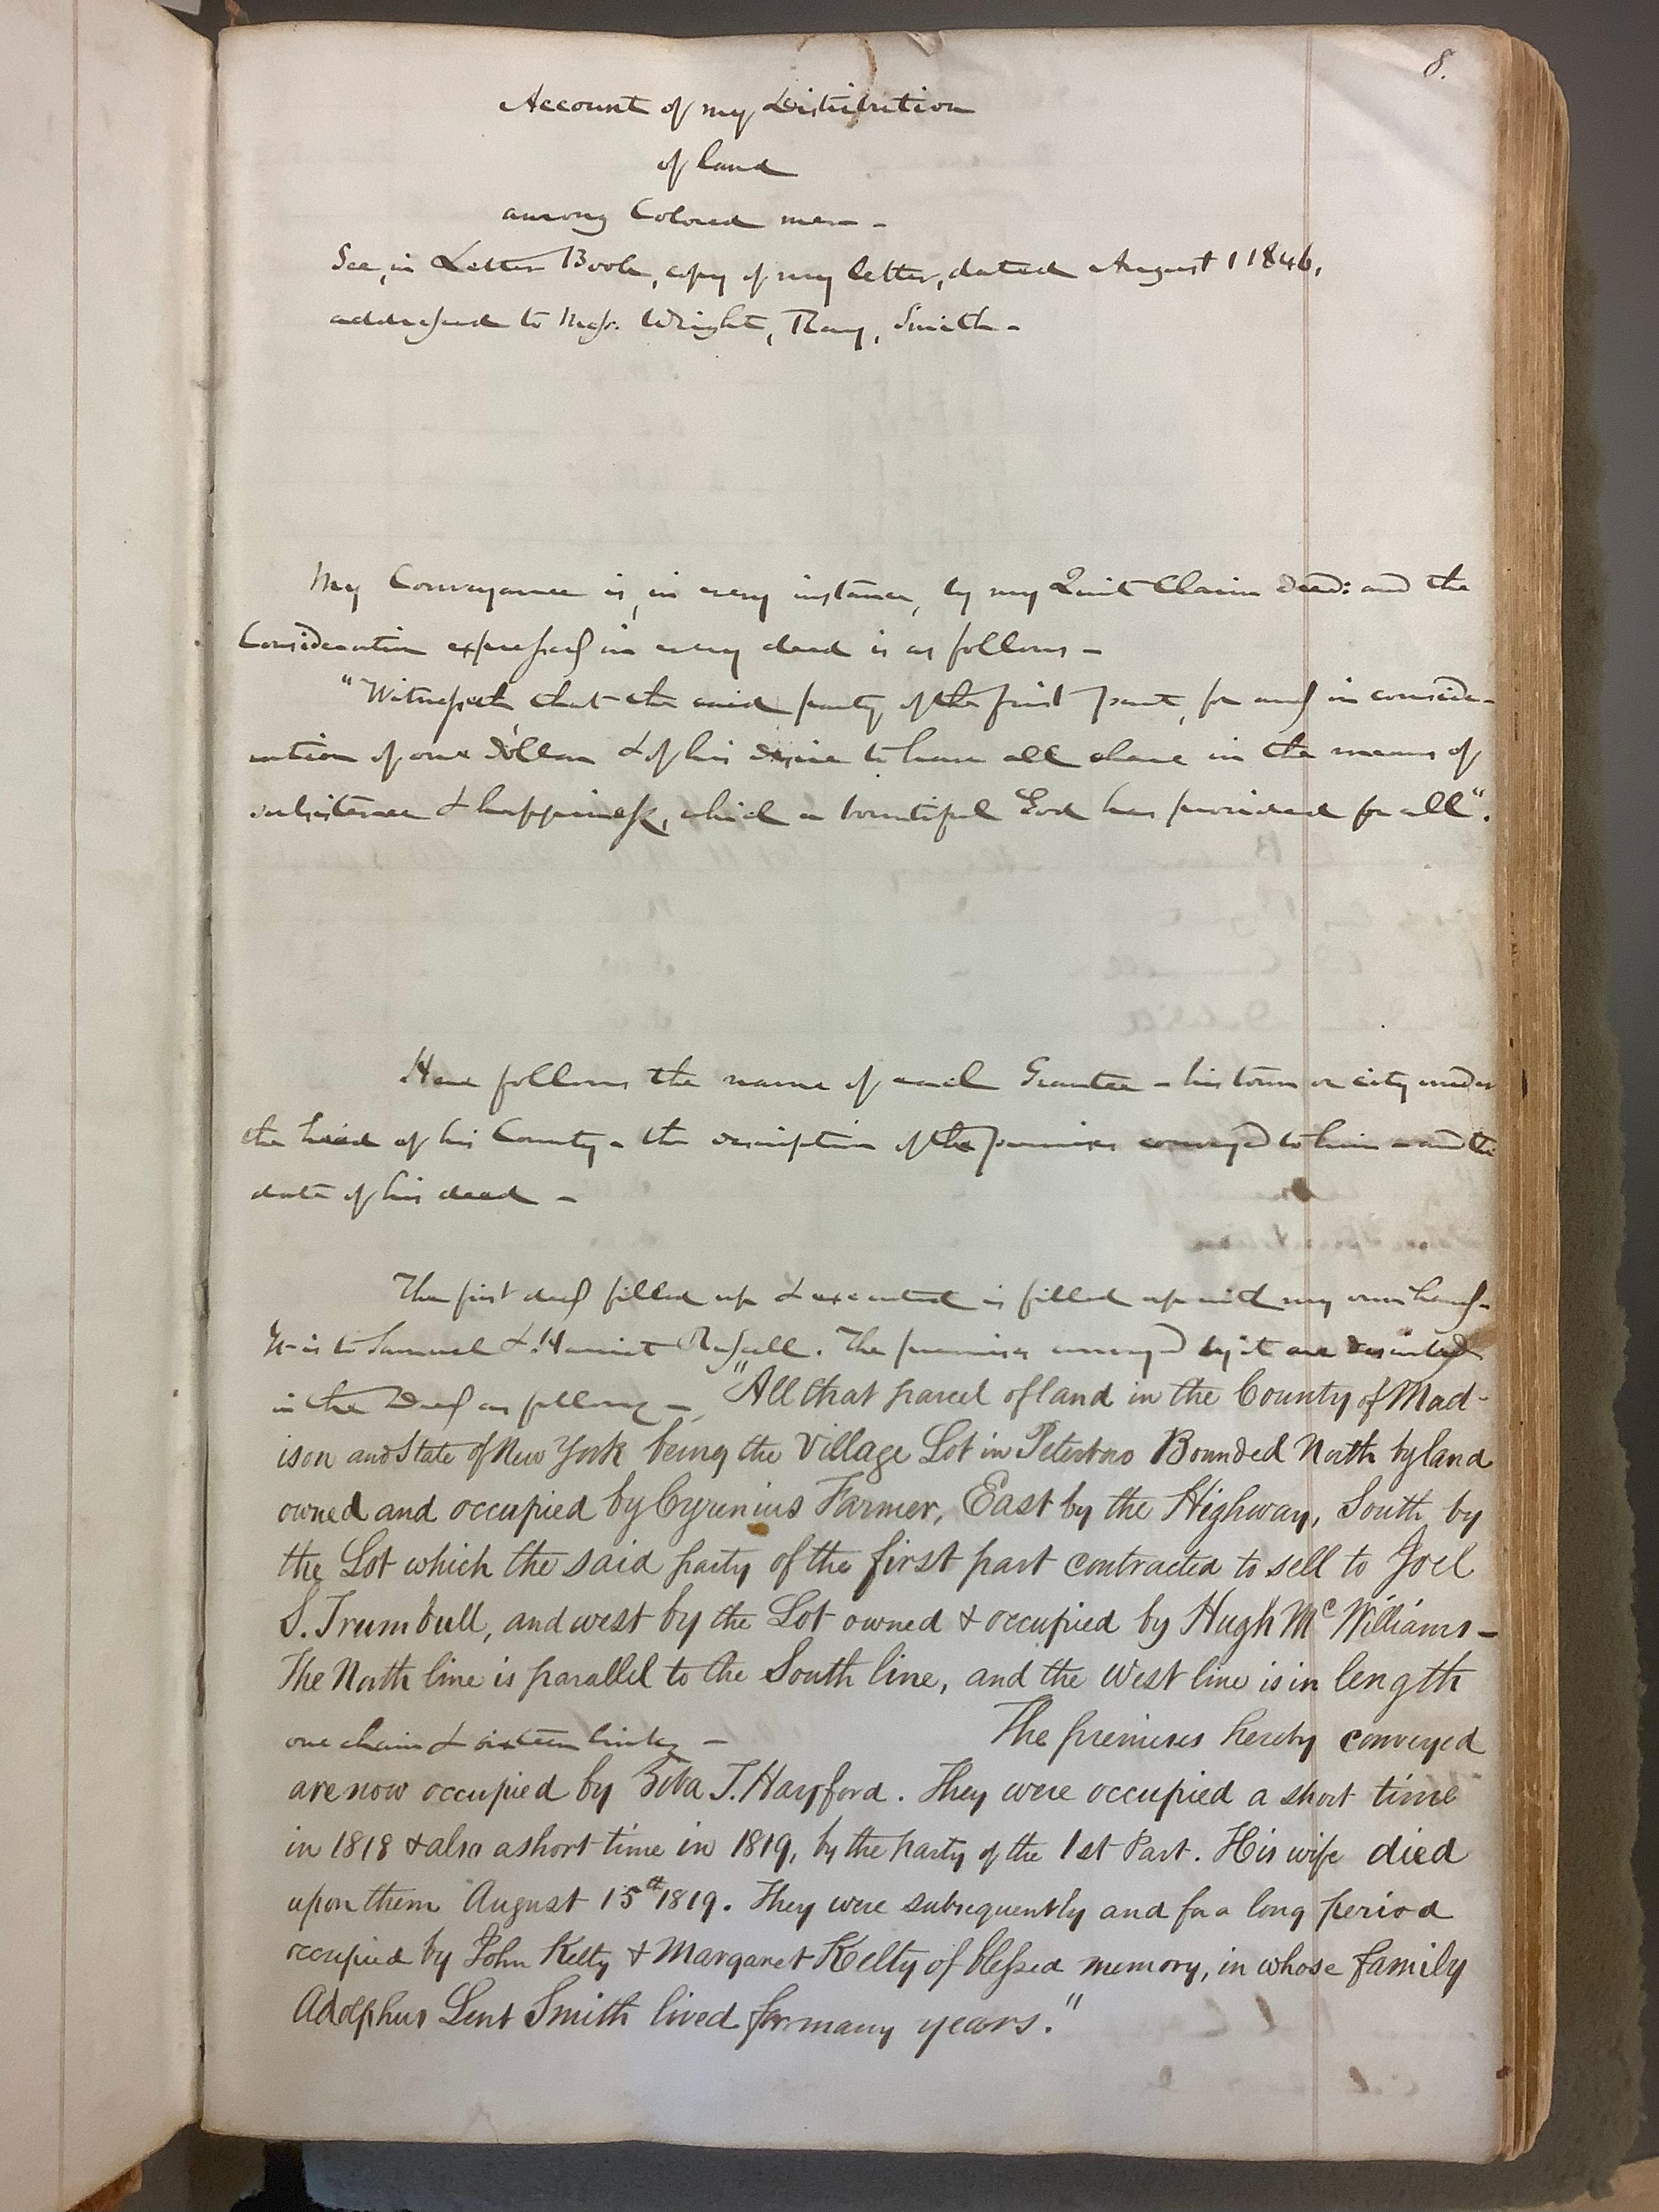 8.
Account of my Distribution
of land
among Colored men -
See, in Letter Book, copy of my letter, dated August 1 1846,
addressed to Messr. Wright, Ray, Smith -
My Conveyance is, in every instance, by my Quit Claim Deed: and the
Consideration expressed in every deed is as follows -
"Witnesseth, that the said party of the first part, for and in conside-
ration of one Dollar & of his desire to have all share in the means of
subsistence & happiness, which a bountiful God has provided for all".
Here follows the name of each Grantee - his town or city under
the head of his County - the description of the premises conveyed to him - and the
date of his deed -
The first deed filled up & executed is filled up with my own hand -
It is to Samuel & Harriet Russell. The premises conveyed by it are described
in the Deed as follows - "All that parcel of land in the County of Mad-
ison and State of New York being the Village Lot in Peterboro Bounded North by land
owned and occupied by Cyrenius Farmer, East by the Highway, South by
the Lot which the said party of the first part contracted to sell to Joel
S. Trumbull, and west by the Lot owned & occupied by Hugh Mc Williams -
The North line is parallel to the South line, and the West line is in length
one chain & sixteen links - The premises hereby conveyed
are now occupied by Ziba T. Hayford. They were occupied a short time
in 1818 & also a short time in 1819, by the party of the 1st Part. His wife died
upon them August 15th 1819. They were subsequently and for a long period
occupied by John Kelty & Margaret Kelty of blessed memory, in whose family
Adolphus Lent Smith lived for many years."